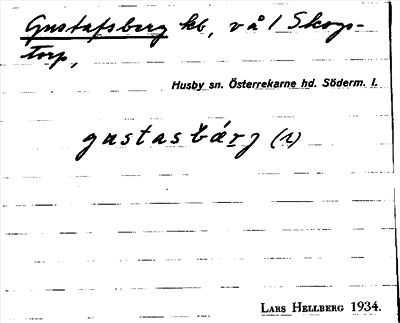 Gustafsberg kb, vå/ Skogs-
torp,
Husby sn. Österrekarne hd. Söderm. l.
gustasbárj (1)
LARS HELLBERG 1934.